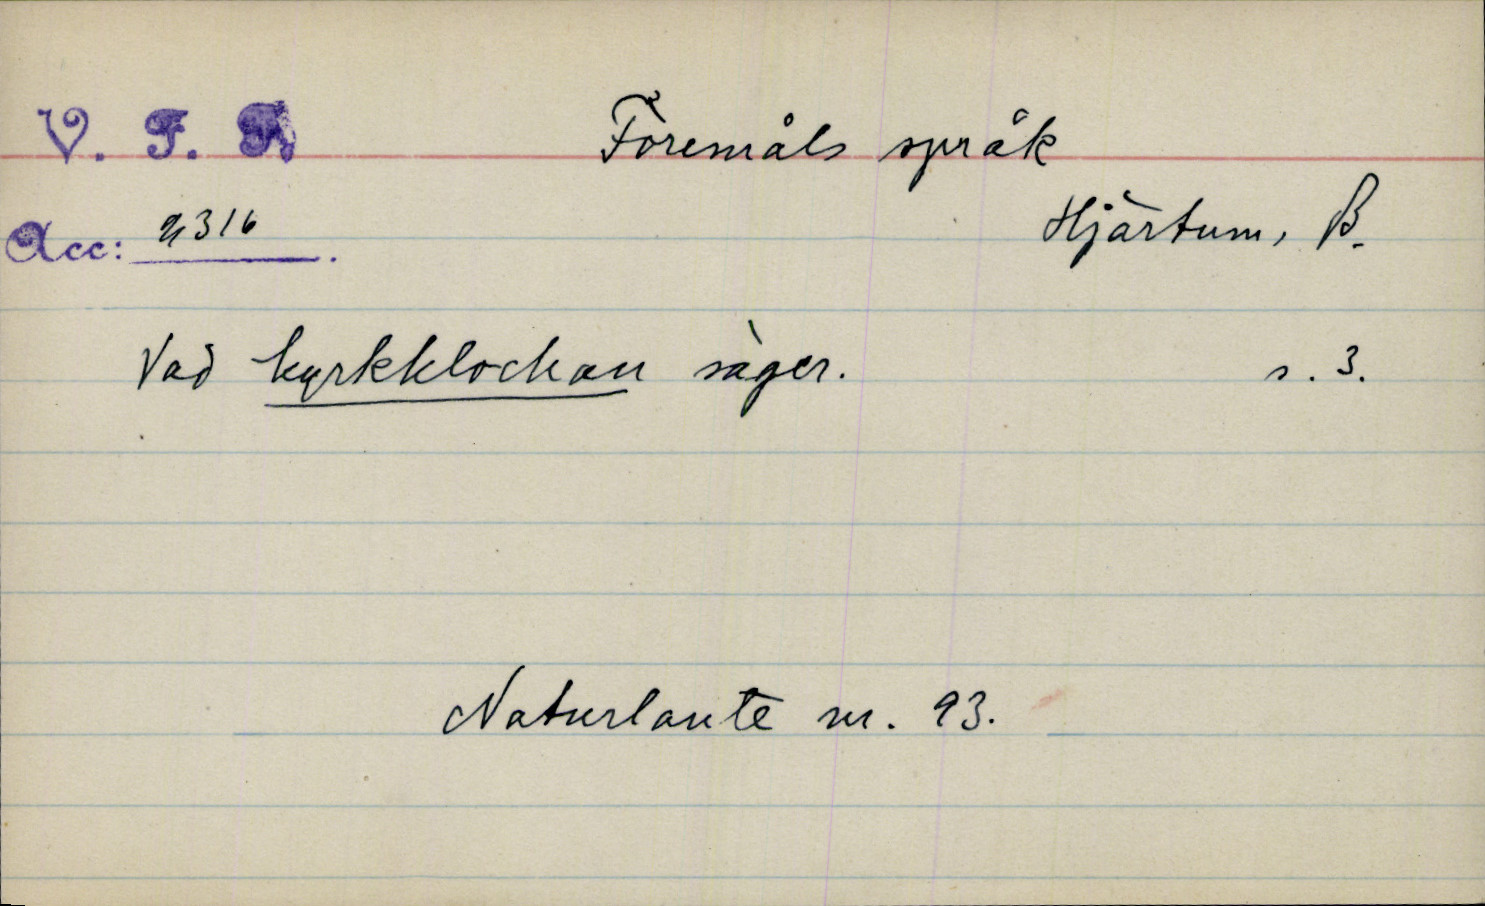 V. F. F.
Föremåls språk
Acc: 2316.
Hjärtum, B.
Vad kyrkklockan säger. s. 3.
Naturlaute nr. 93.